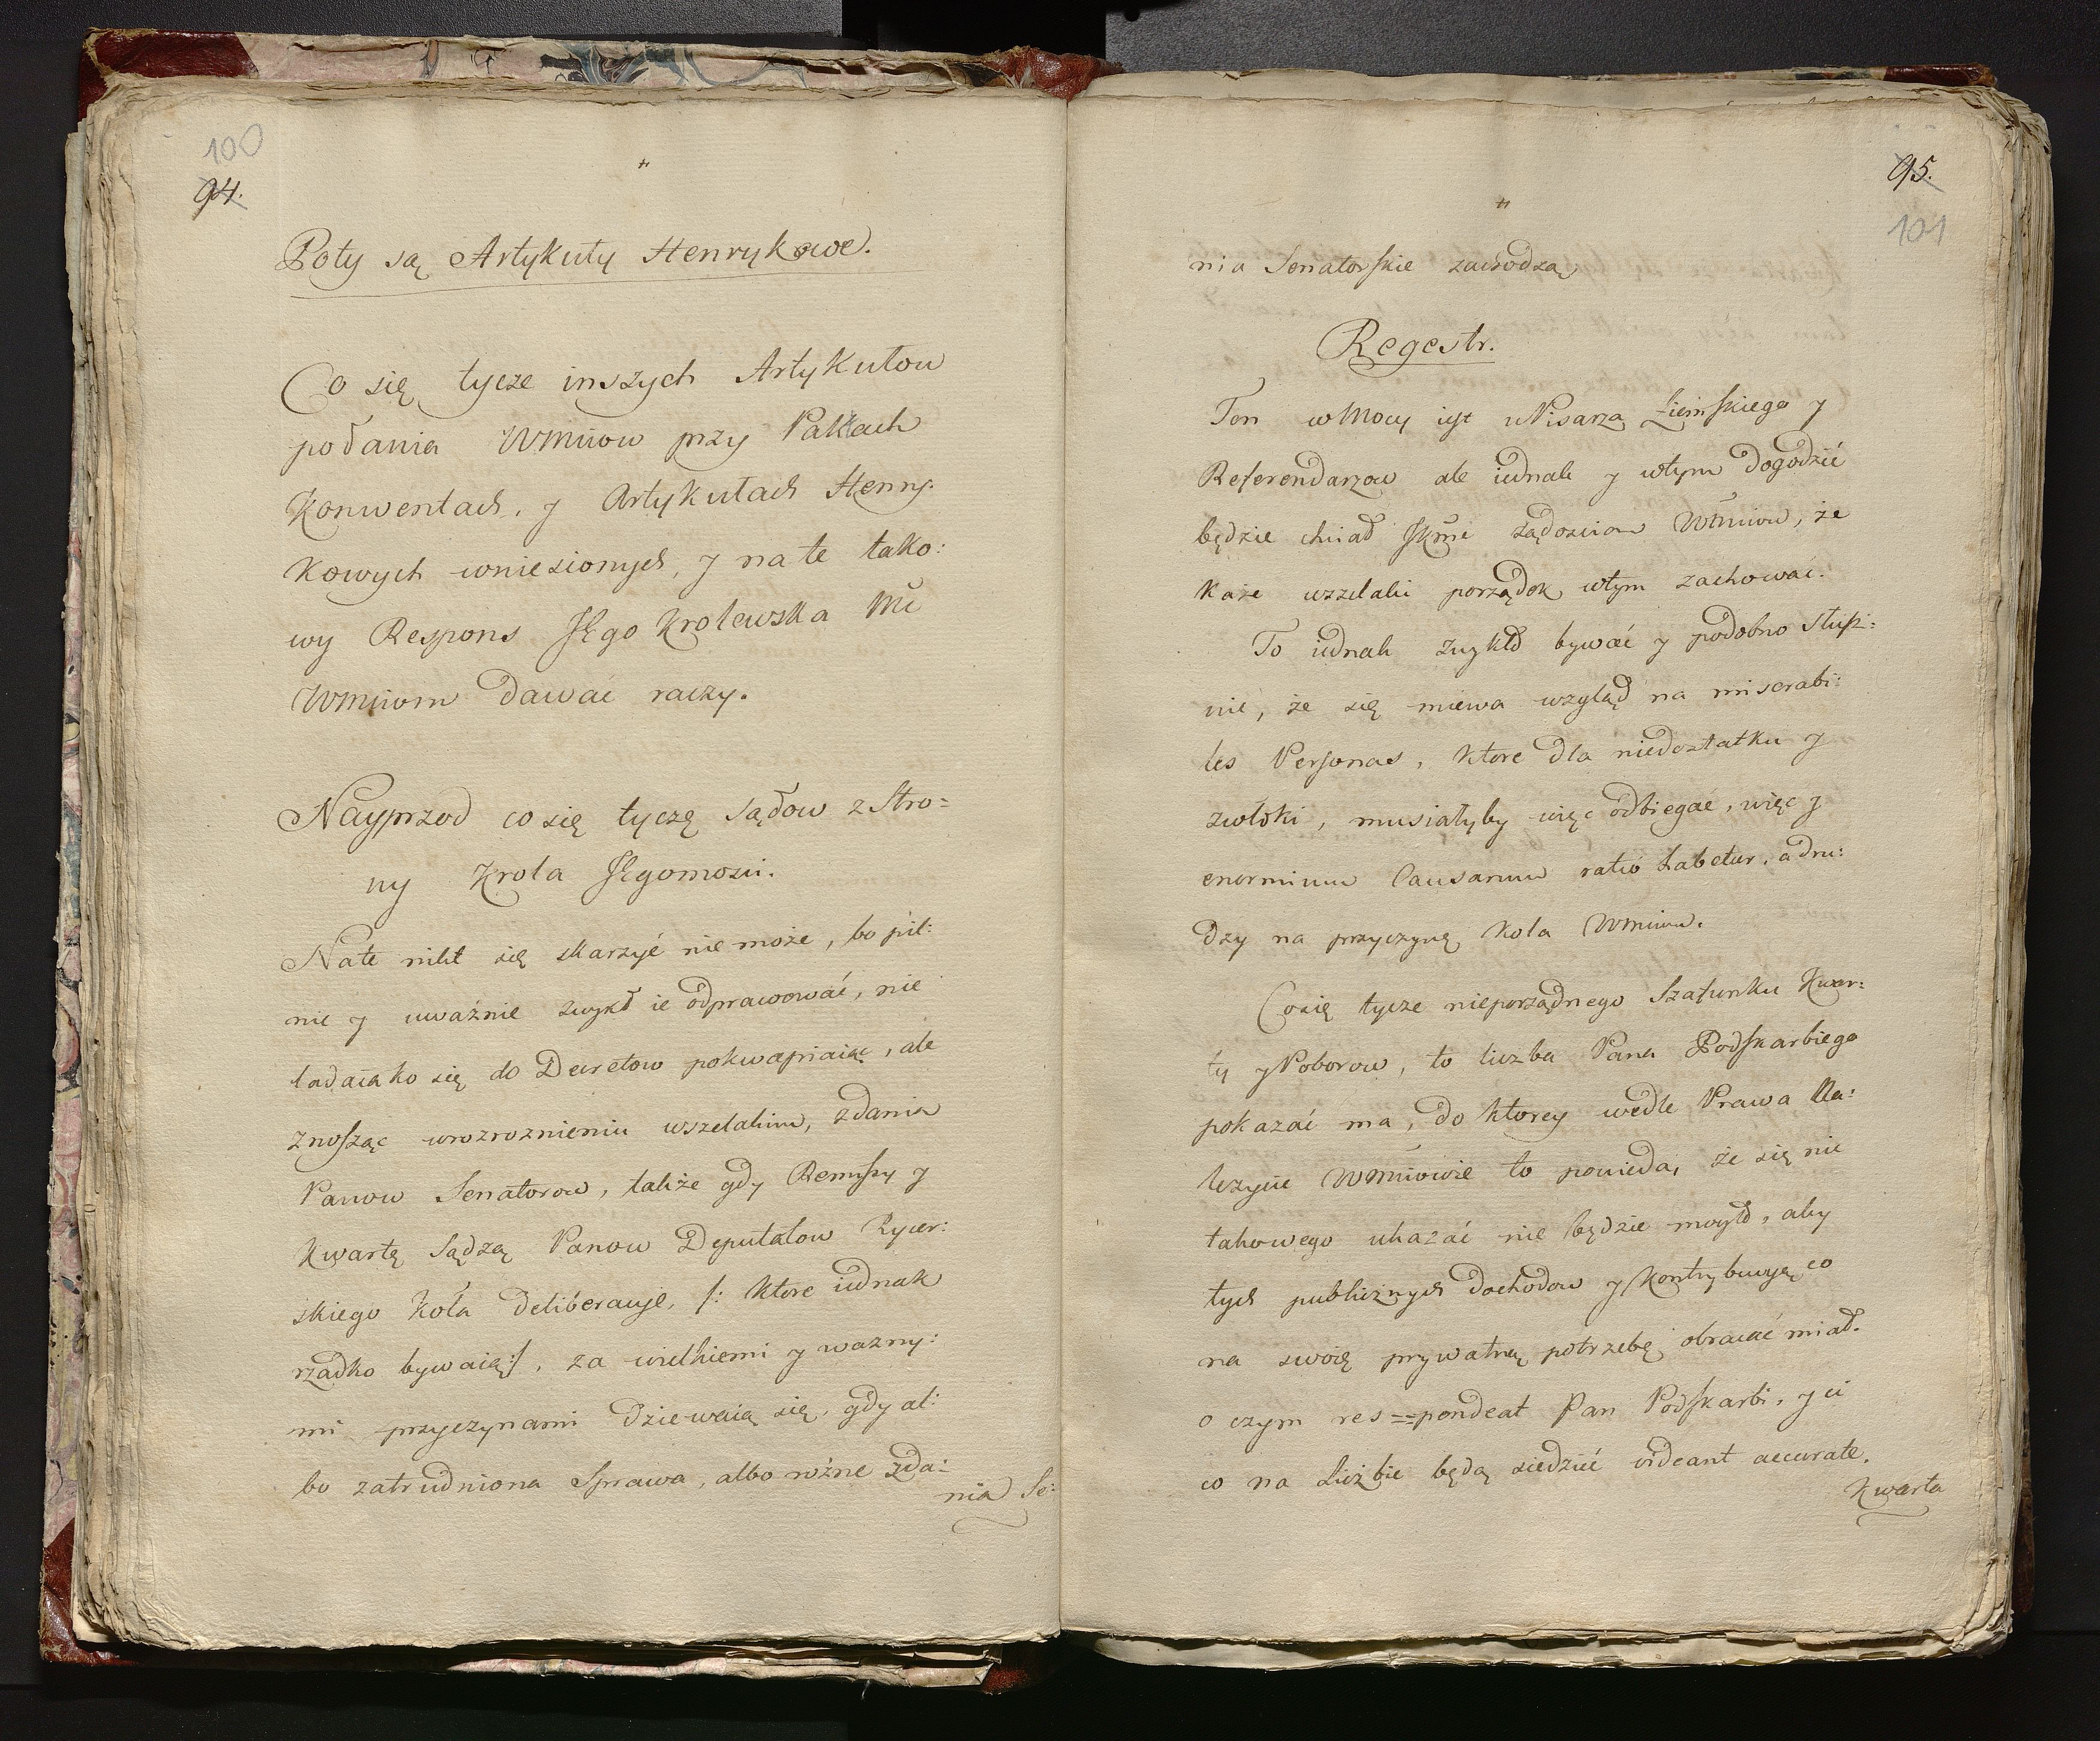 100
94.
Poty są Artykuły Henrykowe.
Co się tycze inszych Artykułow
podania WMciow przy Paktach
Konwentach, y Artykułach Henry-
kowych wniesionych, y na te tako:
wy Respons JEgo Krolewska Mć
WMciom dawać raczy.
Nayprzod co się tyczę sądow z Stro=
ny Krola JEgomosci.
Nate nikt się skarzyć nie może, bo pil:
nie y uważnie zwykł ie odprawować, nie
ladaiako się do Decretow pokwapiaiąc, ale
znosząc w rozroznieniu wszelakim, zdania
Panow Senatorow, także gdy Remissy y
Kwartę sądzą Panow Deputatow Rycer:
skiego Koła deliberacye, /: Ktore iednak
rzadko bywaią:/, za wielkiemi y wazny:
mi przyczynami dziewaią się, gdy al:
bo zatrudniona Sprawa, albo rożne zda:
nia Se:
95.
101
nia Senatorskie zachodzą
Regestr.
Ten w Mocy iest u Pisarza Ziemskiego y
Referendarzow ale iednak y wtym dogodzić
będzie chciał JKmć żądosciom WMciow, że
każe wszelaki porządek wtym zachować.
To iednak zwykło bywać y podobno słusz:
nie, że się miewa wzgląd na miserabi:
les Personas, Ktore dla niedostatku y
zwłoki, musiałyby więc odbiegać, więc y
enormium Causarum ratio habetur, a dru:
dzy na przyczynę Koła WMciow.
Co się tycze nieporządnego Szafunku Kwar:
ty y Poborow, to liczba Pana Podskarbiego
pokazać ma, do Ktorey wedle Prawa Na:
leżycie WMciowie to powieda, że się nie
takowego ukazać nie będzie mogło, aby
tych publicznych dochodow y Kontrybucyą co
na swoię prywatną potrzebę obracać miał.
o czym res==pondeat Pan Podskarbi, y ci
co na Liczbie będą siedzieć videant accurate.
Kwarta